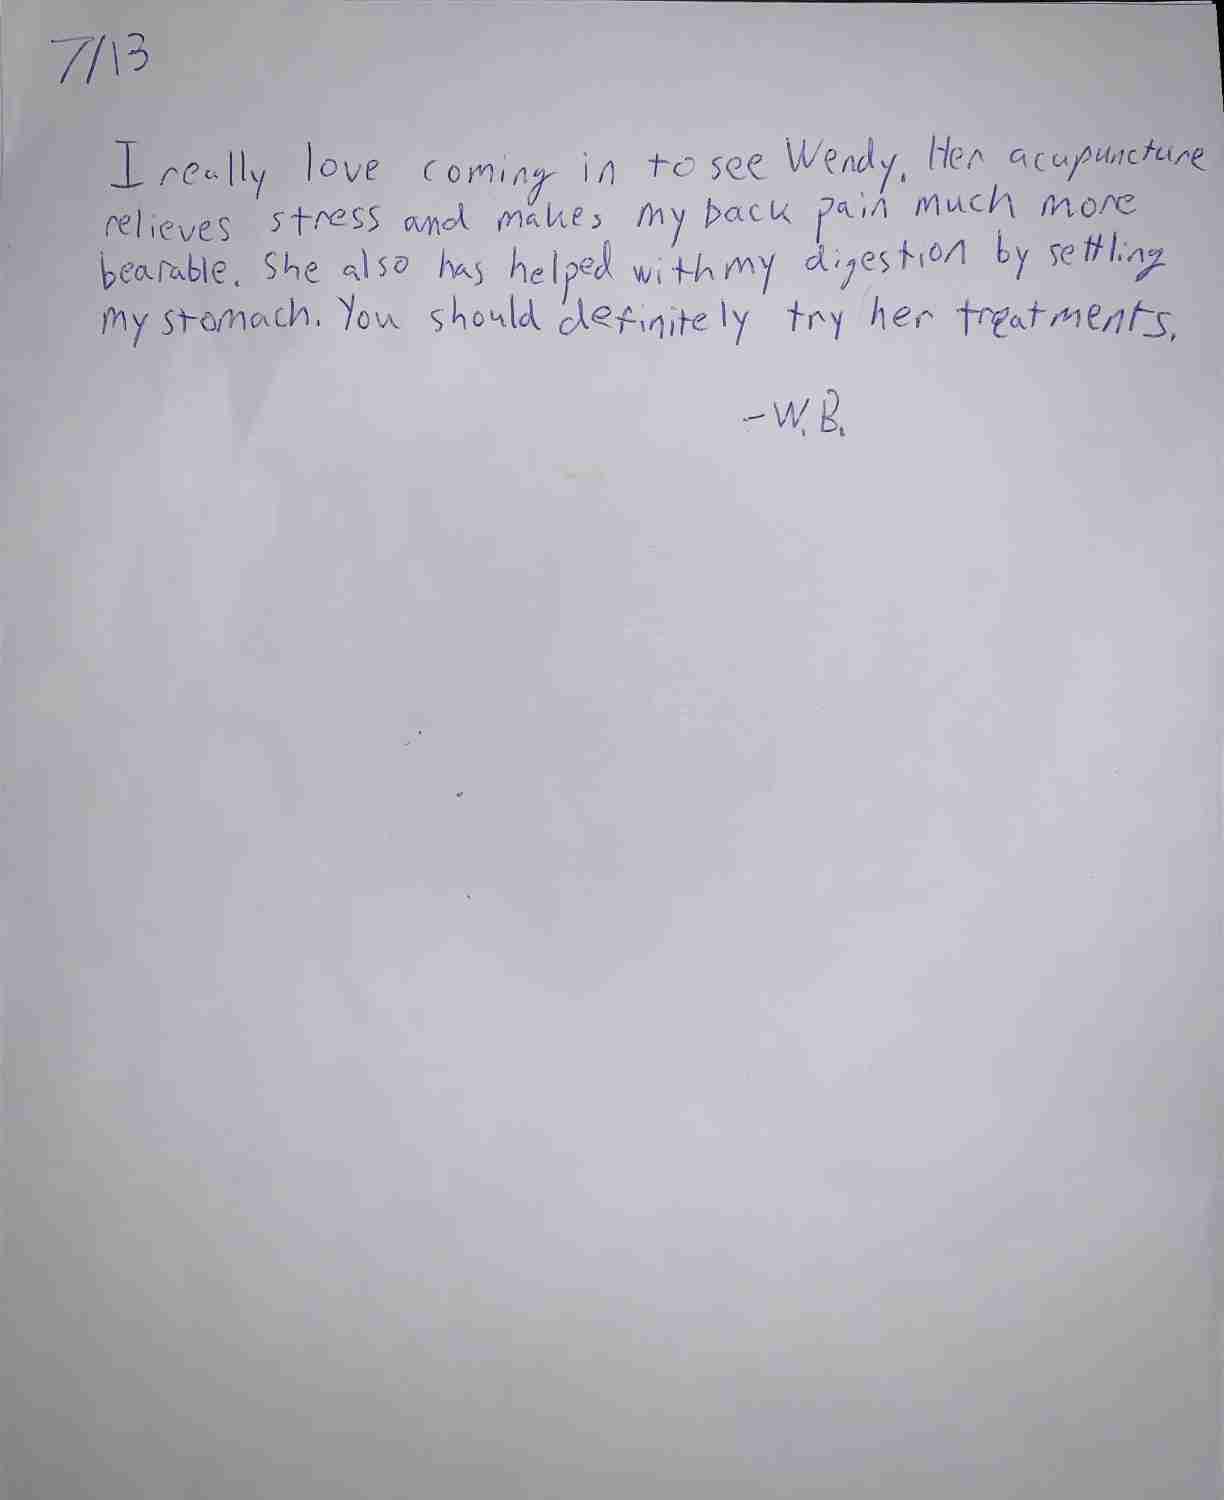 7/13
I really love coming in to see Wendy. Her acupuncture
relieves stress and makes my back pain much more
bearable. She also has helped with my digestion by settling
my stomach. You should definitely try her treatments.
-W.B.